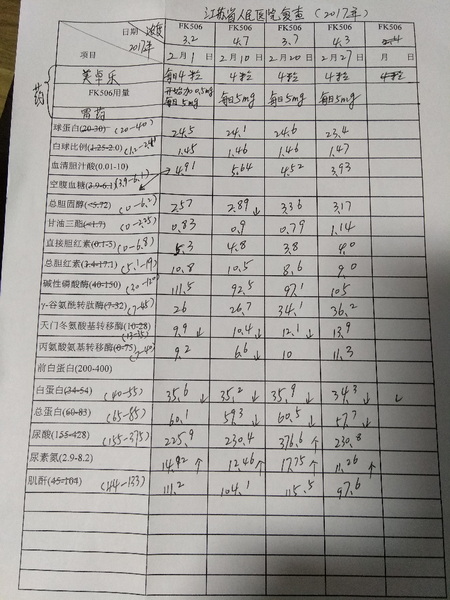 江苏省人民医院复查（2017年）
日期 浓度 FK506 FK506 FK506 FK506 FK506
2017年 3.2 4.7 3.7 4.3
项目 2月1日 2月10日 2月20日 2月27日 月 日
药 美卓乐 每日4粒 4粒 4粒 4粒 4粒
FK506用量 开始加0.5mg 每日5mg 每日5mg 每日5mg 每日5mg
雷药
球蛋白(20-30) (20-40) 24.5 24.1 24.6 23.4
白球比例(1.25-2.0) (1.2-2.4) 1.45 1.46 1.46 1.47
血清胆汁酸(0.01-10) 4.91 5.64 4.52 3.93
空腹血糖(2.9-6.1) (3.9-6.1)
总胆固醇(<5.72) (0-6.2) 2.57 2.89↓ 3.36 3.17
甘油三酯(<1.7) (0-2.25) 0.83 0.9 0.79 1.14
直接胆红素(0.1-5) (0-6.8) 5.3 4.8 3.8 4.0
总胆红素(3.4-17.1) (5.1-19) 10.8 10.5 8.6 9.0
碱性磷酸酶(40-150) (30-120) 111.5 92.5 97.1 105
γ-谷氨酰转肽酶(7-32) (7-45) 26 26.7 34.1 36.2
天门冬氨酸基转移酶(10-28) (13-35) 9.9↓ 10.4↓ 12.1↓ 13.9
丙氨酸氨基转移酶(0-75) (7-40) 9.2 6.6↓ 10 11.3
前白蛋白(200-400)
白蛋白(34-54) (40-55) 35.6↓ 35.2↓ 35.9↓ 34.3↓ ↓
总蛋白(60-83) (65-85) 60.1↓ 59.3↓ 60.5↓ 57.7↓
尿酸(155-428) (155-375) 225.9 230.4 376.6↑ 230.8
尿素氮(2.9-8.2) 14.92↑ 12.46↑ 17.75↑ 11.26↑
肌酐(45-104) (44-133) 111.2 104.1 115.5 97.6